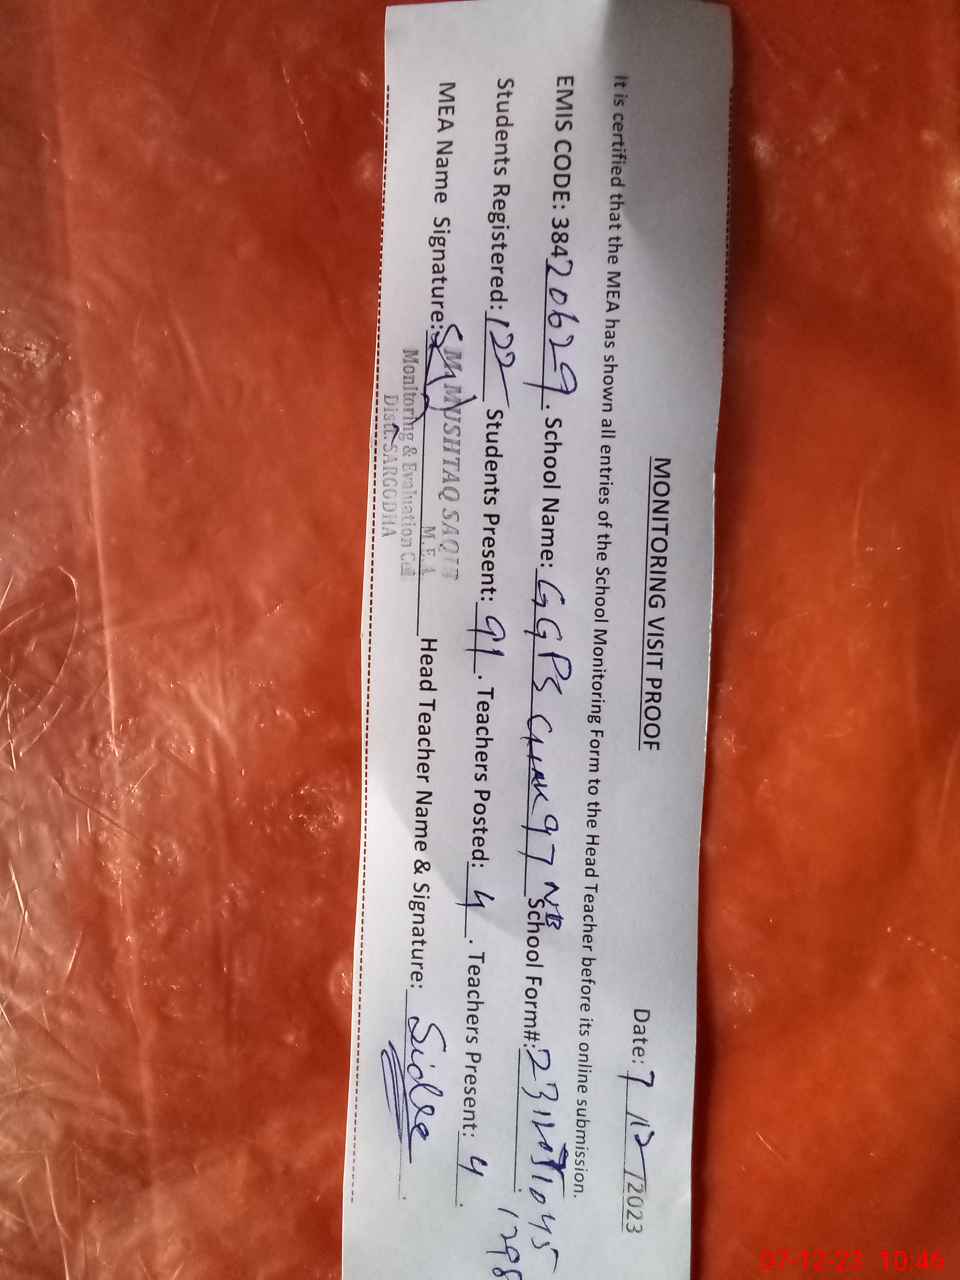 MONITORING VISIT PROOF
Date: 7/12/2023
It is certified that the MEA has shown all entries of the School Monitoring Form to the Head Teacher before its online submission.
EMIS CODE: 38420629. School Name: GGPS CHAK 97 NB School Form#:
Students Registered: 122 Students Present: 91. Teachers Posted: 4. Teachers Present: 4.
MEA Name Signature: Head Teacher Name & Signature:
M MUSHTAQ SAQIB
M.E.A
Monitoring & Evaluation Cell
Distt. SARGODHA
07-12-23 10:46